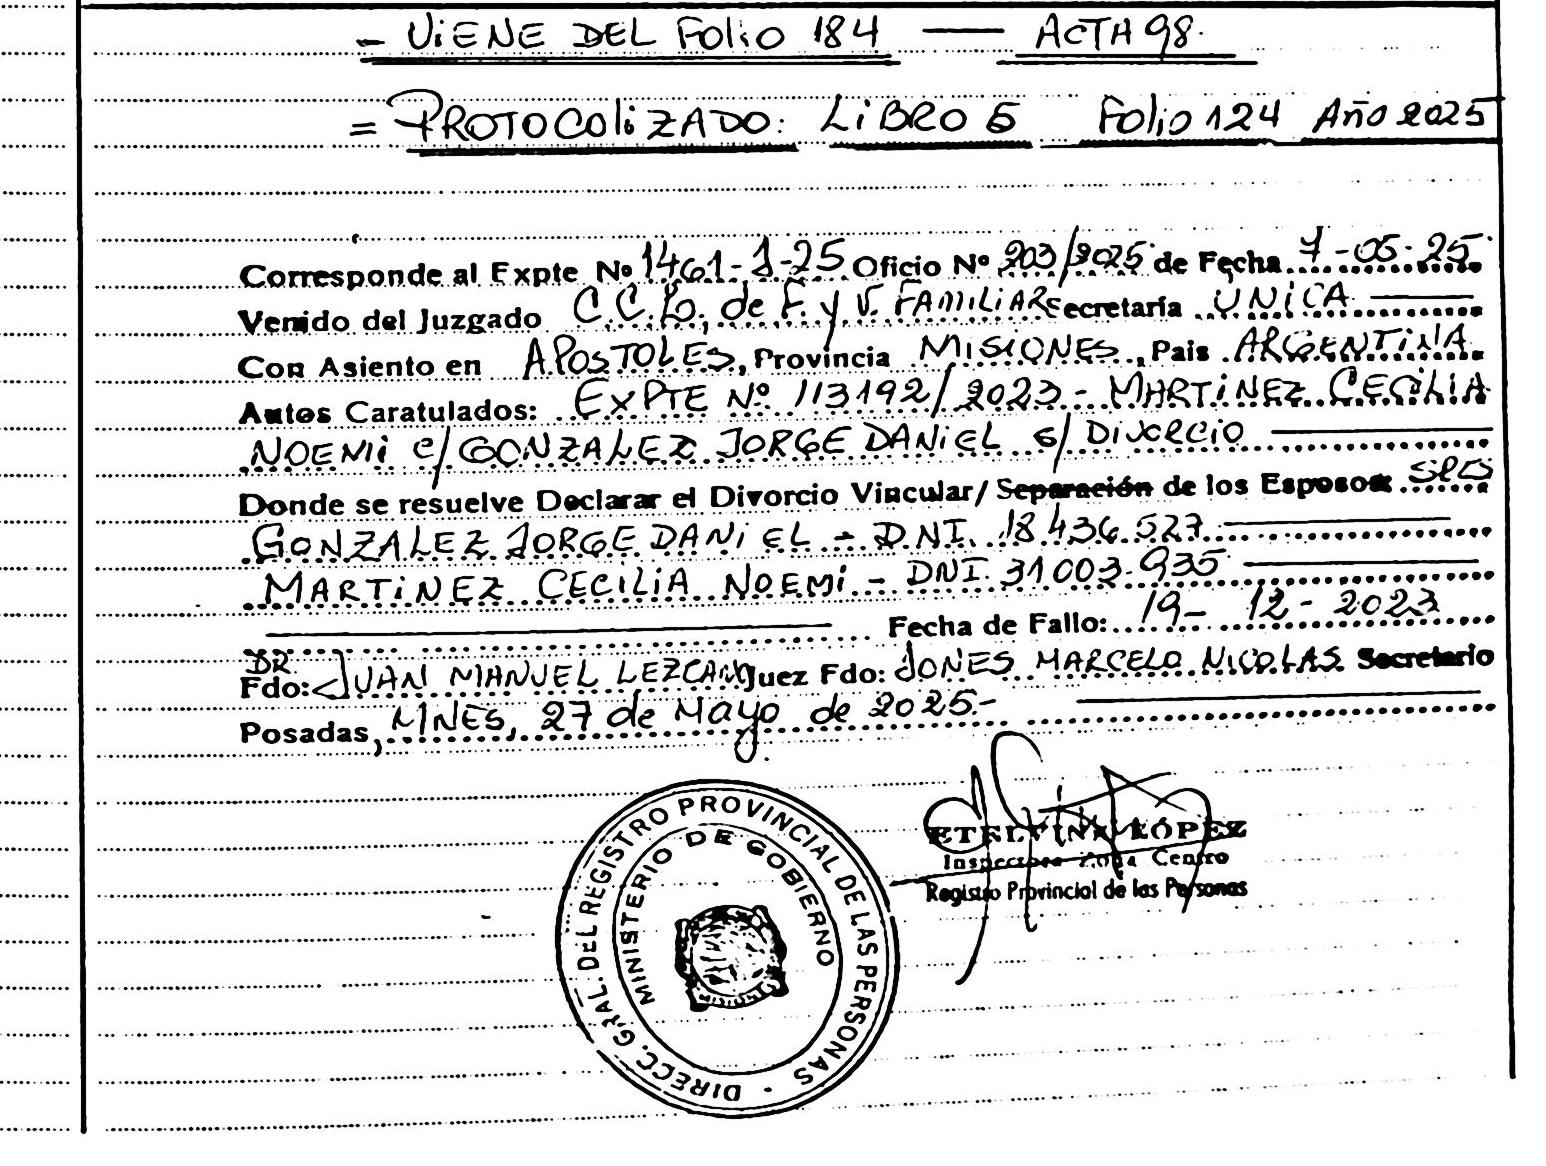 - ViENE DEL FOLiO 184 — ACTA 98.
= PROTOCOLiZADO: LiBRO 5 Folio 124 Año 2025
Corresponde al Expte Nº 1461-J-25 Oficio Nº 203/2025 de Fecha 7-05-25
Venido del Juzgado C.C.Lo, de F. y V. FAMILIAR Secretaría UNiCA
Con Asiento en APOSTOLES, Provincia MISIONES, Pais ARGENTINA
Autos Caratulados: EXPTE Nº 113192/2023- MARTiNEZ CECiLiA
NOEMi c/ GONZALEZ JORGE DANiEL s/ DIVORCIO
Donde se resuelve Declarar el Divorcio Vincular/ Separación de los Esposos: SRES
GONZALEZ JORGE DANiEL - D.N.I. 18.436.527
MARTiNEZ CECiLiA NOEMi - DNI. 31.003.935
Fecha de Fallo: 19- 12- 2023
DR
Fdo: JUAN MANUEL LEZCANO Juez Fdo: JONES MARCELO NICOLAS Secretario
Posadas, MNES, 27 de Mayo de 2025.-
DIRECC. GRAL. DEL REGISTRO PROVINCIAL DE LAS PERSONAS -
MINISTERIO DE GOBIERNO
ETELVINA LOPEZ
Inspectora Zona Centro
Registro Provincial de las Personas